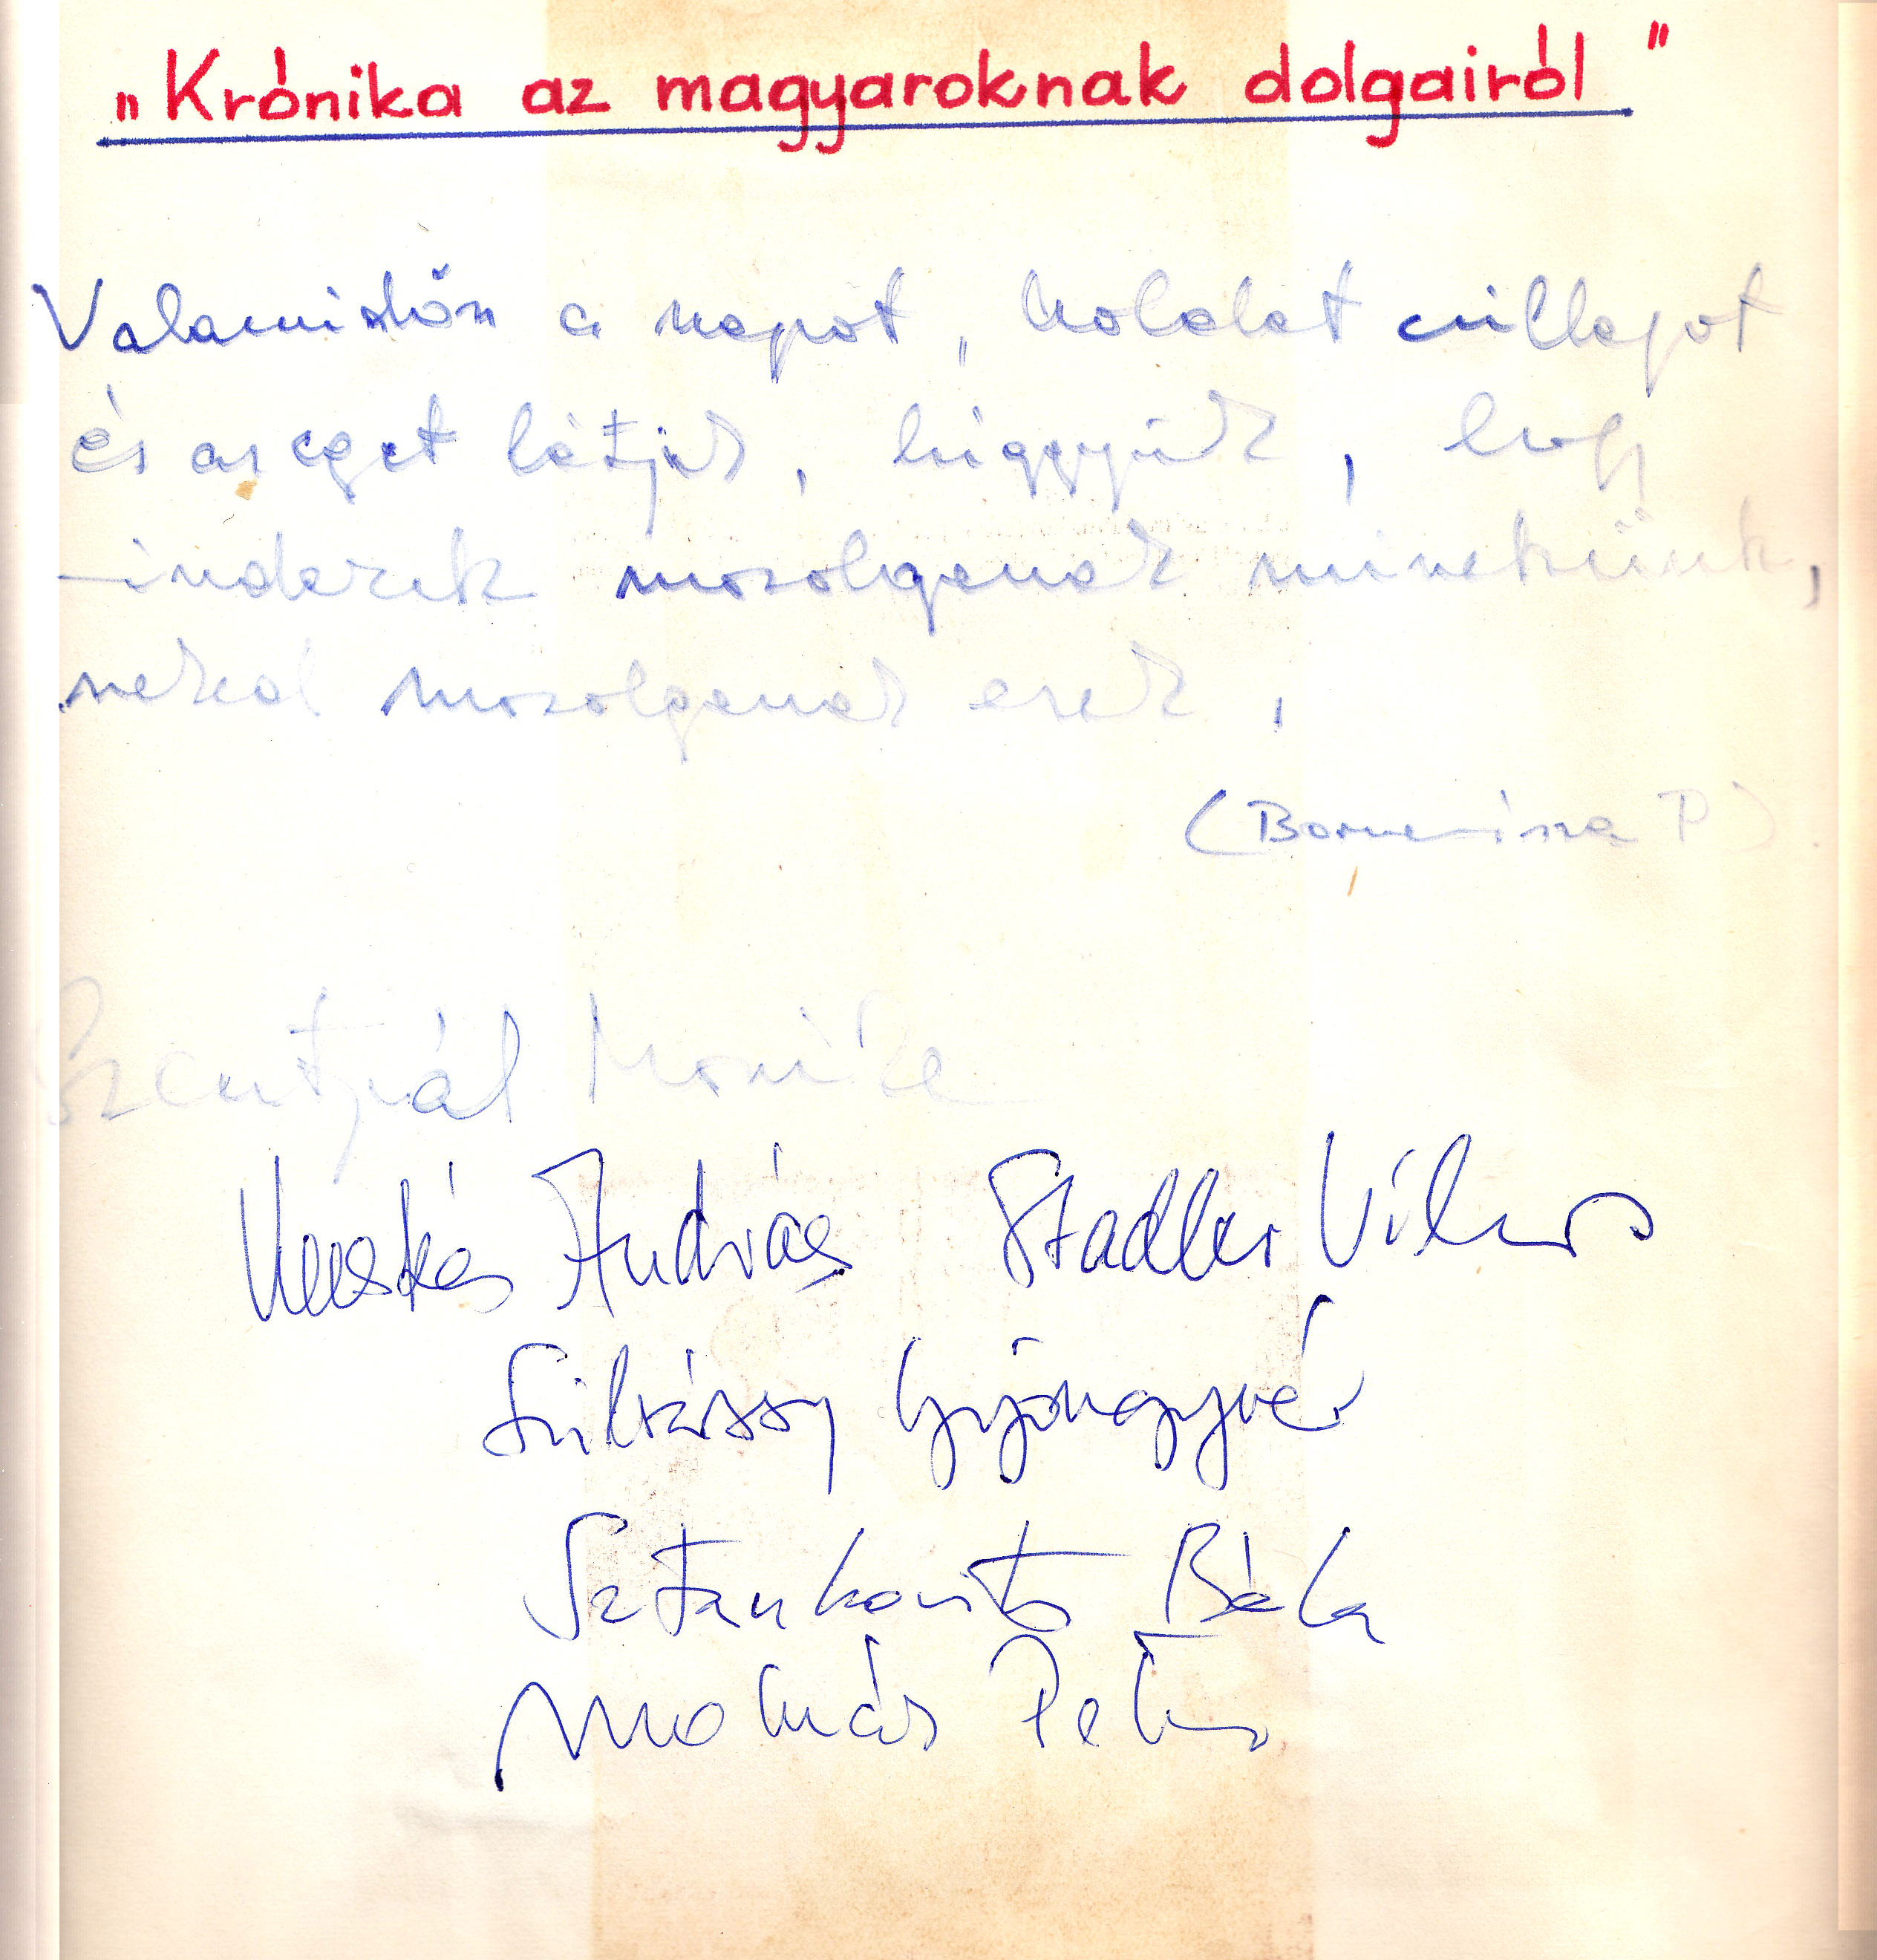 „Krónika az magyaroknak dolgairól"
Valamidőn a napot, holdat csillagot
és az eget látjuk, higgyük, hogy
mindezek mosolyganak minekünk,
nekod mosolyganak ezek,
(Bornemisza P)
Szentpál Monika
Kecskés András Stadler Vilmos
Szilvássy Gyöngyvér
Sztankovits Béla
Molnár Péter